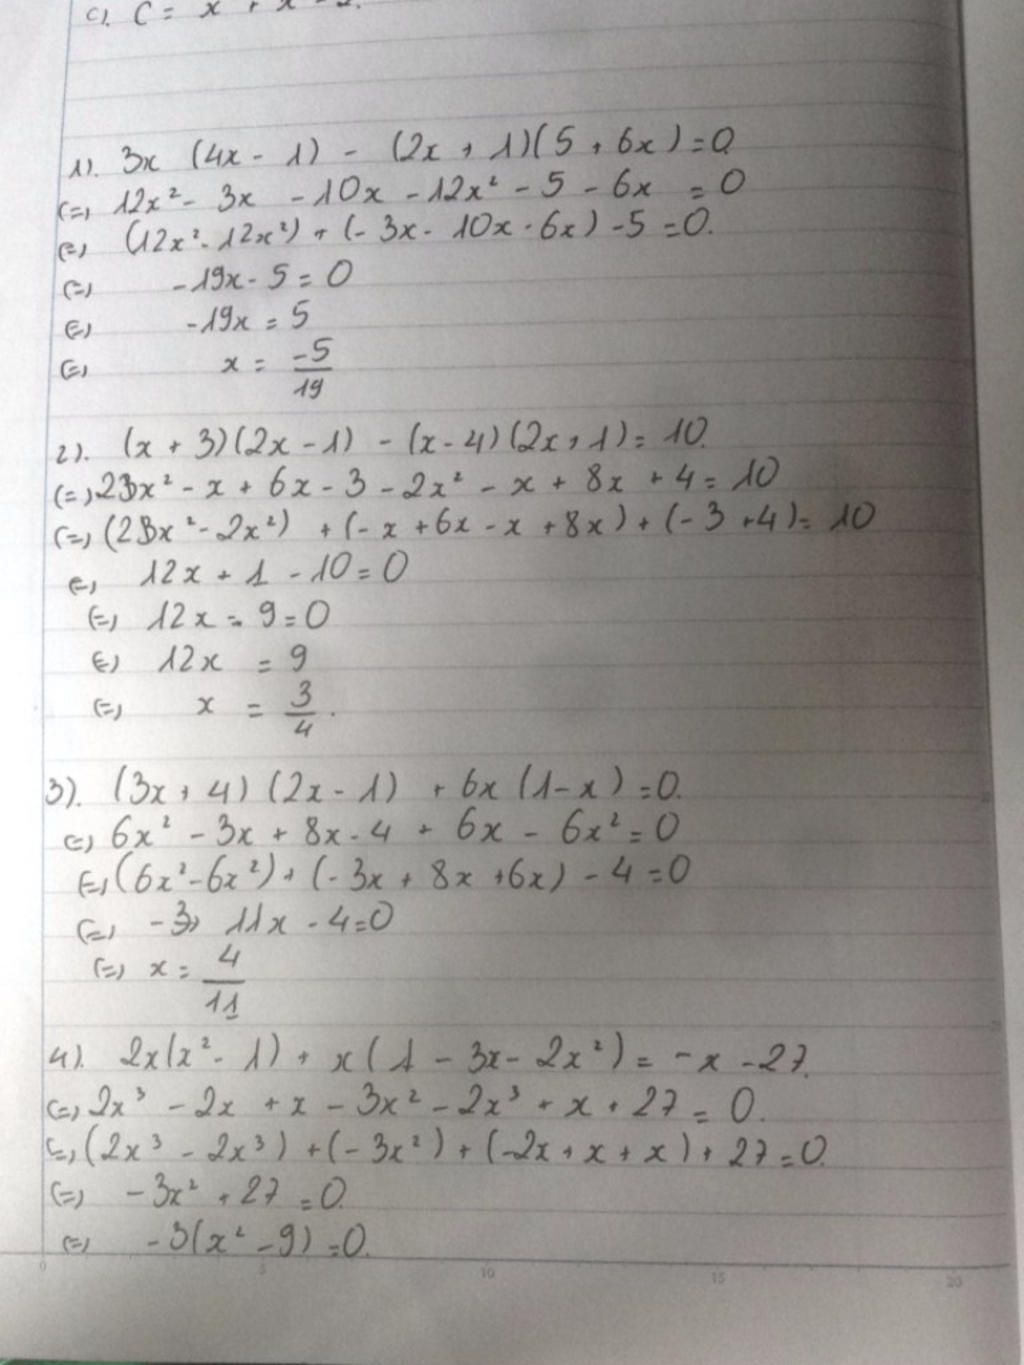 c). C = x + x - 2.
1). 3x (4x - 1) - (2x + 1)(5 + 6x) = 0
(=) 12x² - 3x - 10x - 12x² - 5 - 6x = 0
(=) (12x² - 12x²) + (- 3x - 10x - 6x) - 5 = 0.
(=) - 19x - 5 = 0
(=) - 19x = 5
(=) x = -5/19
2). (x + 3)(2x - 1) - (x - 4)(2x + 1) = 10.
(=) 2x² - x + 6x - 3 - 2x² - x + 8x + 4 = 10
(=) (2x² - 2x²) + (- x + 6x - x + 8x) + (- 3 + 4) = 10
(=) 12x + 1 - 10 = 0
(=) 12x - 9 = 0
(=) 12x = 9
(=) x = 3/4.
3). (3x + 4) (2x - 1) + 6x (1 - x) = 0.
(=) 6x² - 3x + 8x - 4 + 6x - 6x² = 0
(=) (6x² - 6x²) + (- 3x + 8x + 6x) - 4 = 0
(=) 11x - 4 = 0
(=) x = 4/11
4). 2x(x² - 1) + x(1 - 3x - 2x²) = - x - 27.
(=) 2x³ - 2x + x - 3x² - 2x³ + x + 27 = 0.
(=) (2x³ - 2x³) + (- 3x²) + (-2x + x + x) + 27 = 0.
(=) - 3x² + 27 = 0.
(=) - 3(x² - 9) = 0.
0 5 10 15 20